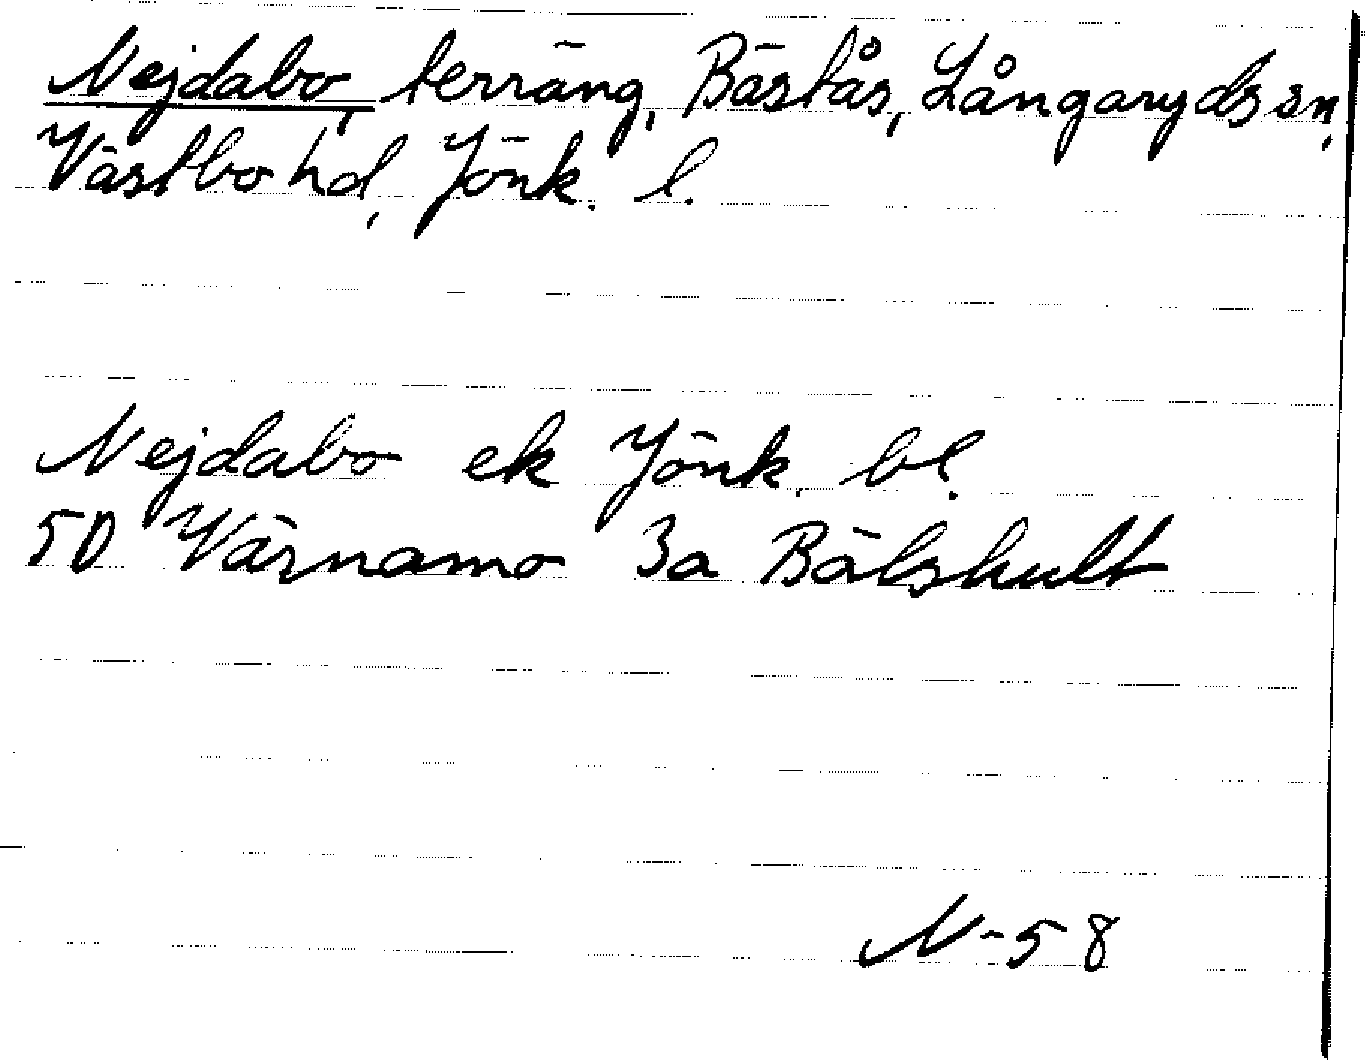 Nejdabo, terräng, Bästås, Långaryds sn,
Västbo hd, Jönk. l.
Nejdabo ek Jönk. bl.
5D Värnamo 3a Bälshult
N-58